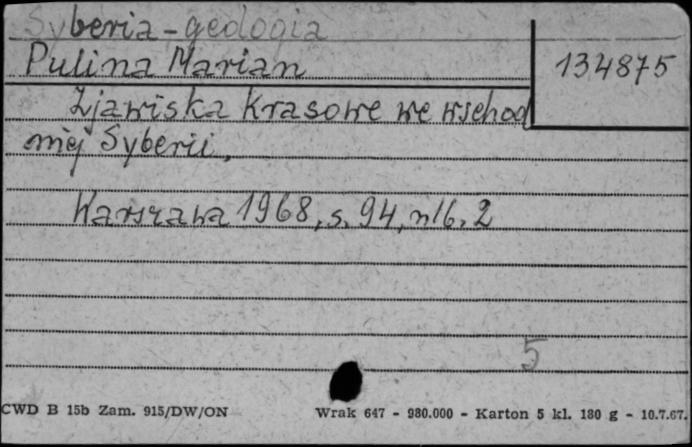 Syberia - geologia
Pulina Marian
134875
Zjawiska krasowe we wschod
niej Syberii,
Warszawa 1968, s. 94, nlb. 2
5
CWD B 15b Zam. 915/DW/ON
Wrak 647 - 980.000 - Karton 5 kl. 180 g - 10.7.67.